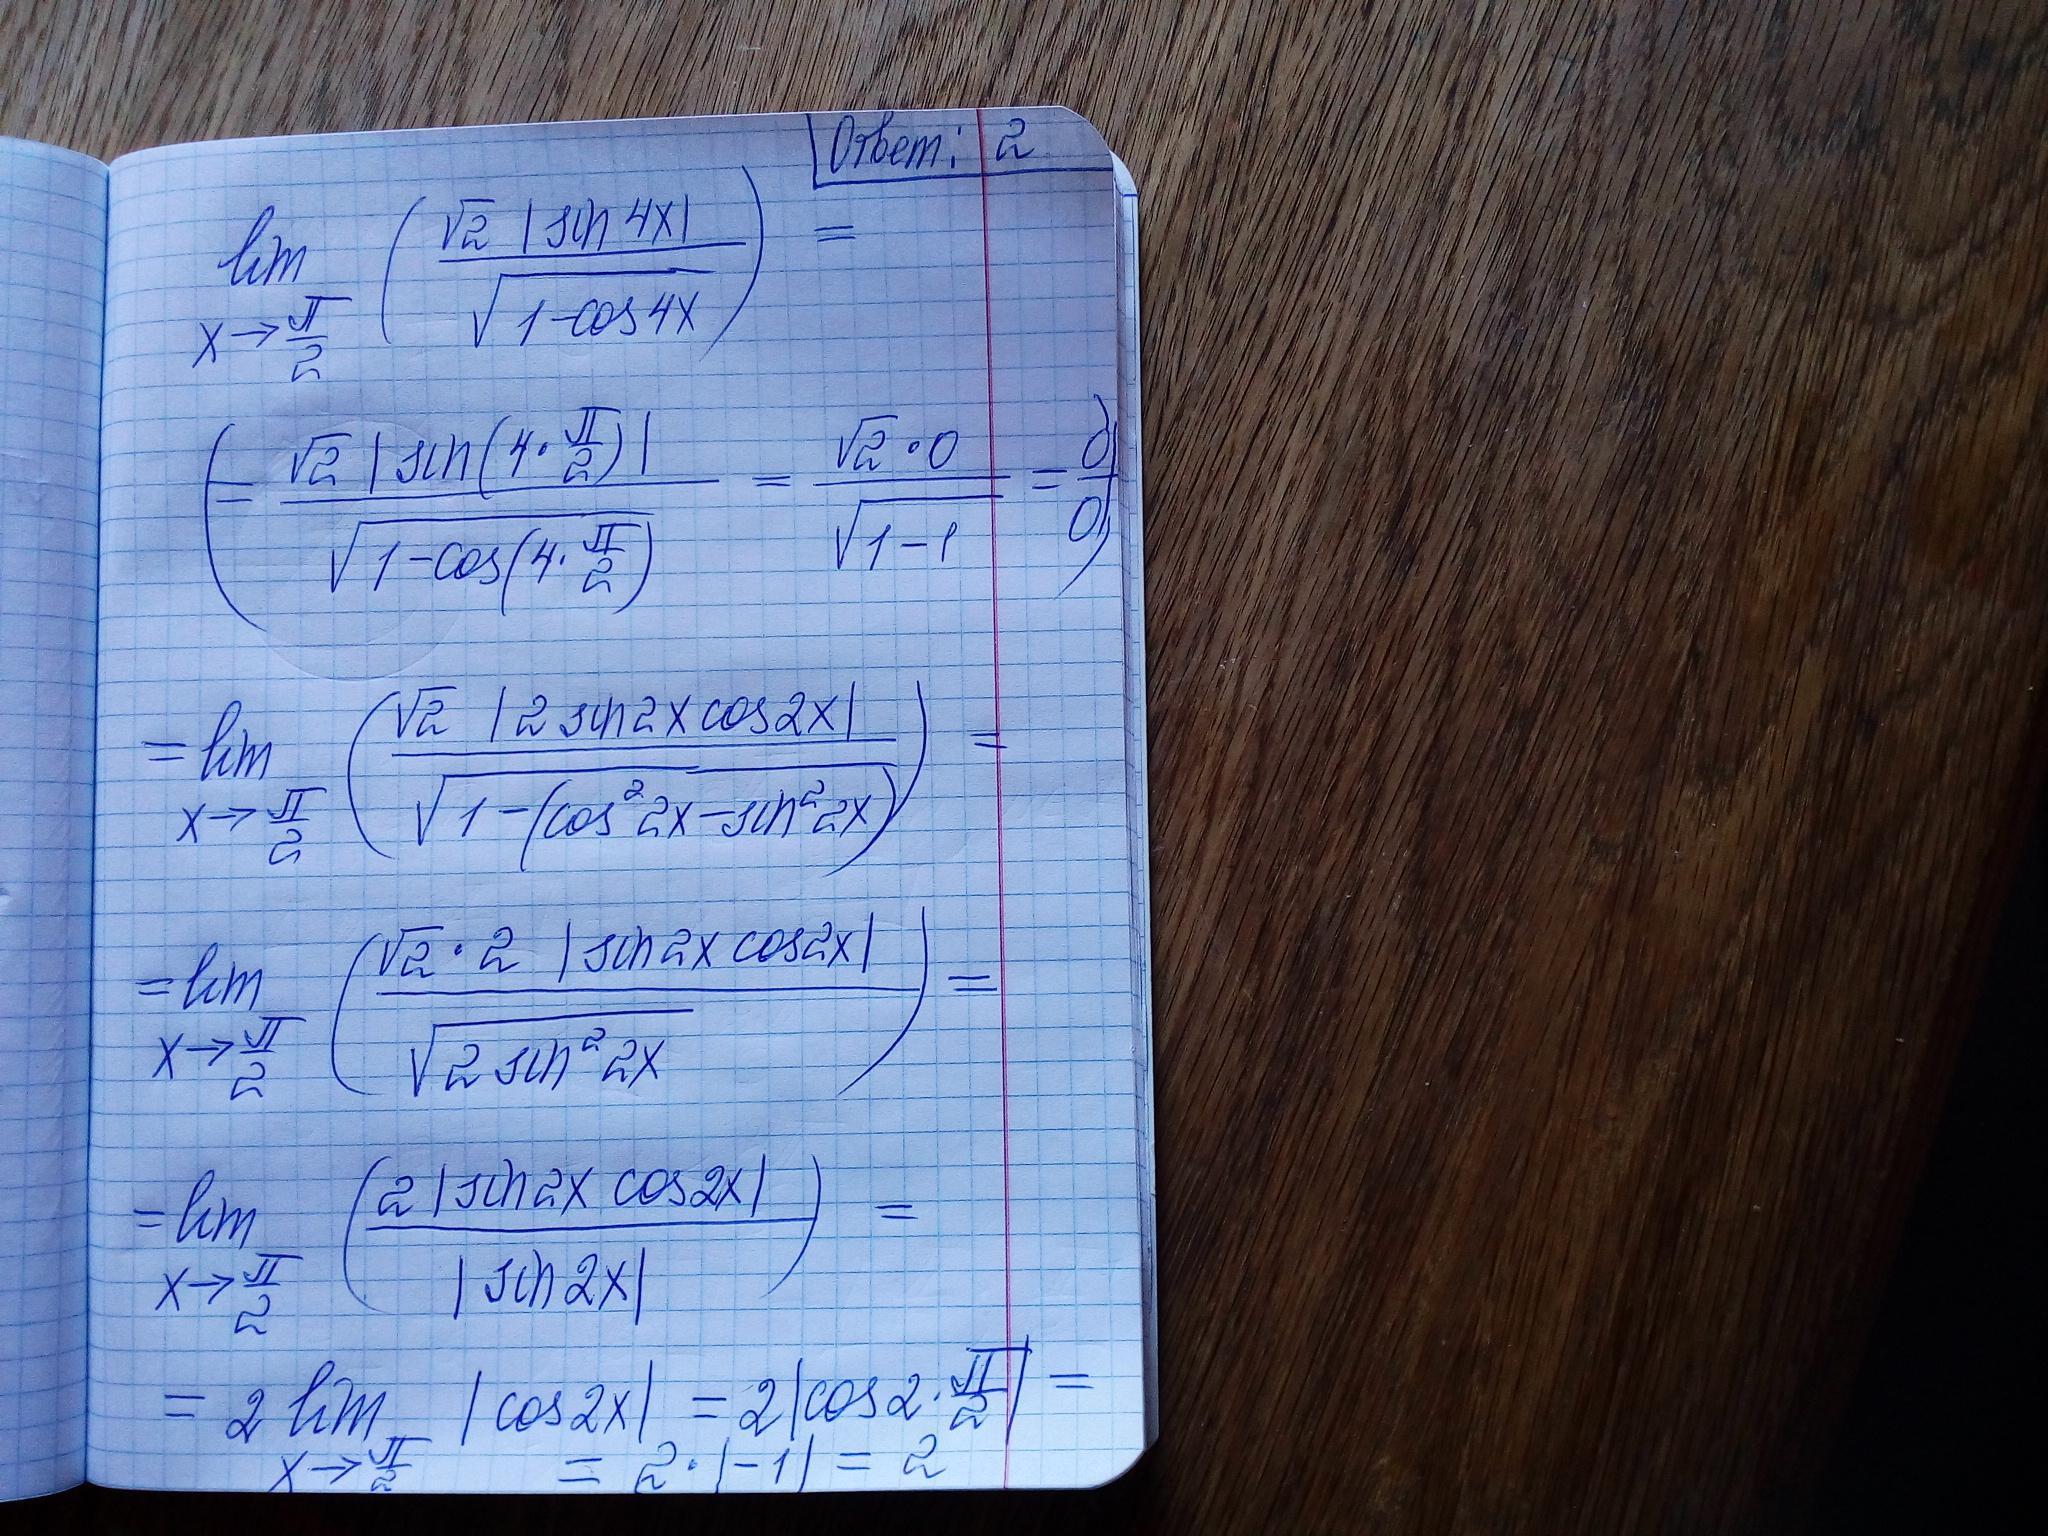 Ответ: 2
lim x→π/2 (√2 |sin 4x| / √(1-cos 4x)) =
(= √2 |sin(4·π/2)| / √(1-cos(4·π/2)) = √2·0 / √(1-1) = 0/0)
= lim x→π/2 (√2 |2 sin 2x cos 2x| / √(1-(cos² 2x - sin² 2x))) =
= lim x→π/2 (√2·2 |sin 2x cos 2x| / √(2 sin² 2x)) =
= lim x→π/2 (2 |sin 2x cos 2x| / |sin 2x|) =
= 2 lim x→π/2 |cos 2x| = 2|cos 2·π/2| =
= 2·|-1| = 2